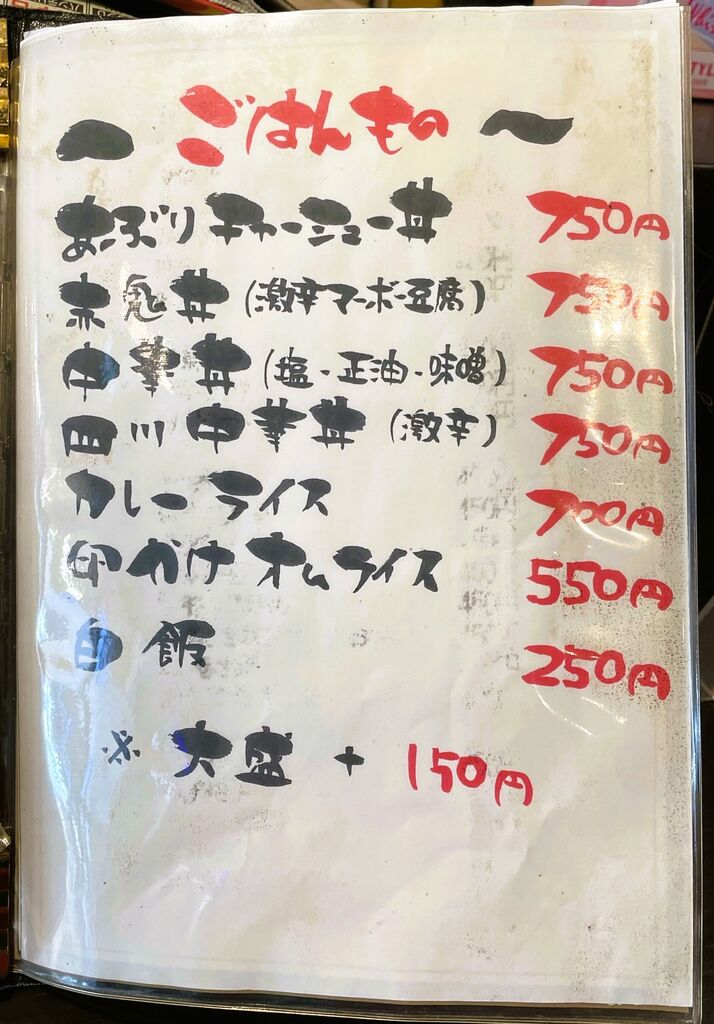 ごはんもの
あぶりチャーシュー丼 750円
赤鬼丼 (激辛マーボー豆腐) 750円
中華丼 (塩・正油・味噌) 750円
四川中華丼 (激辛) 750円
カレーライス 700円
卵かけオムライス 550円
白飯 250円
※ 大盛 + 150円